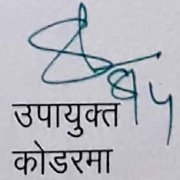 उपायुक्त
कोडरमा